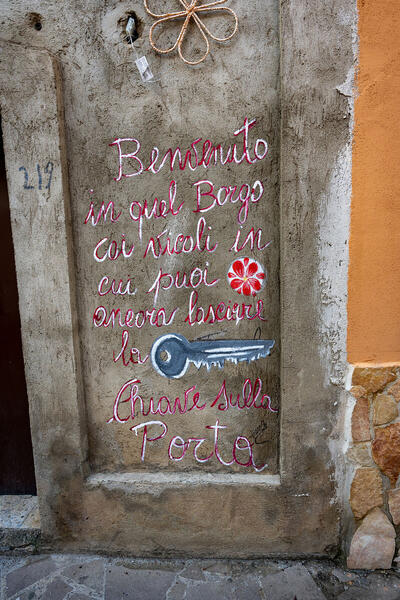 219
Benvenuto
in quel Borgo
coi vicoli in
cui puoi
ancora lasciare
la
Chiave sulla
Porta